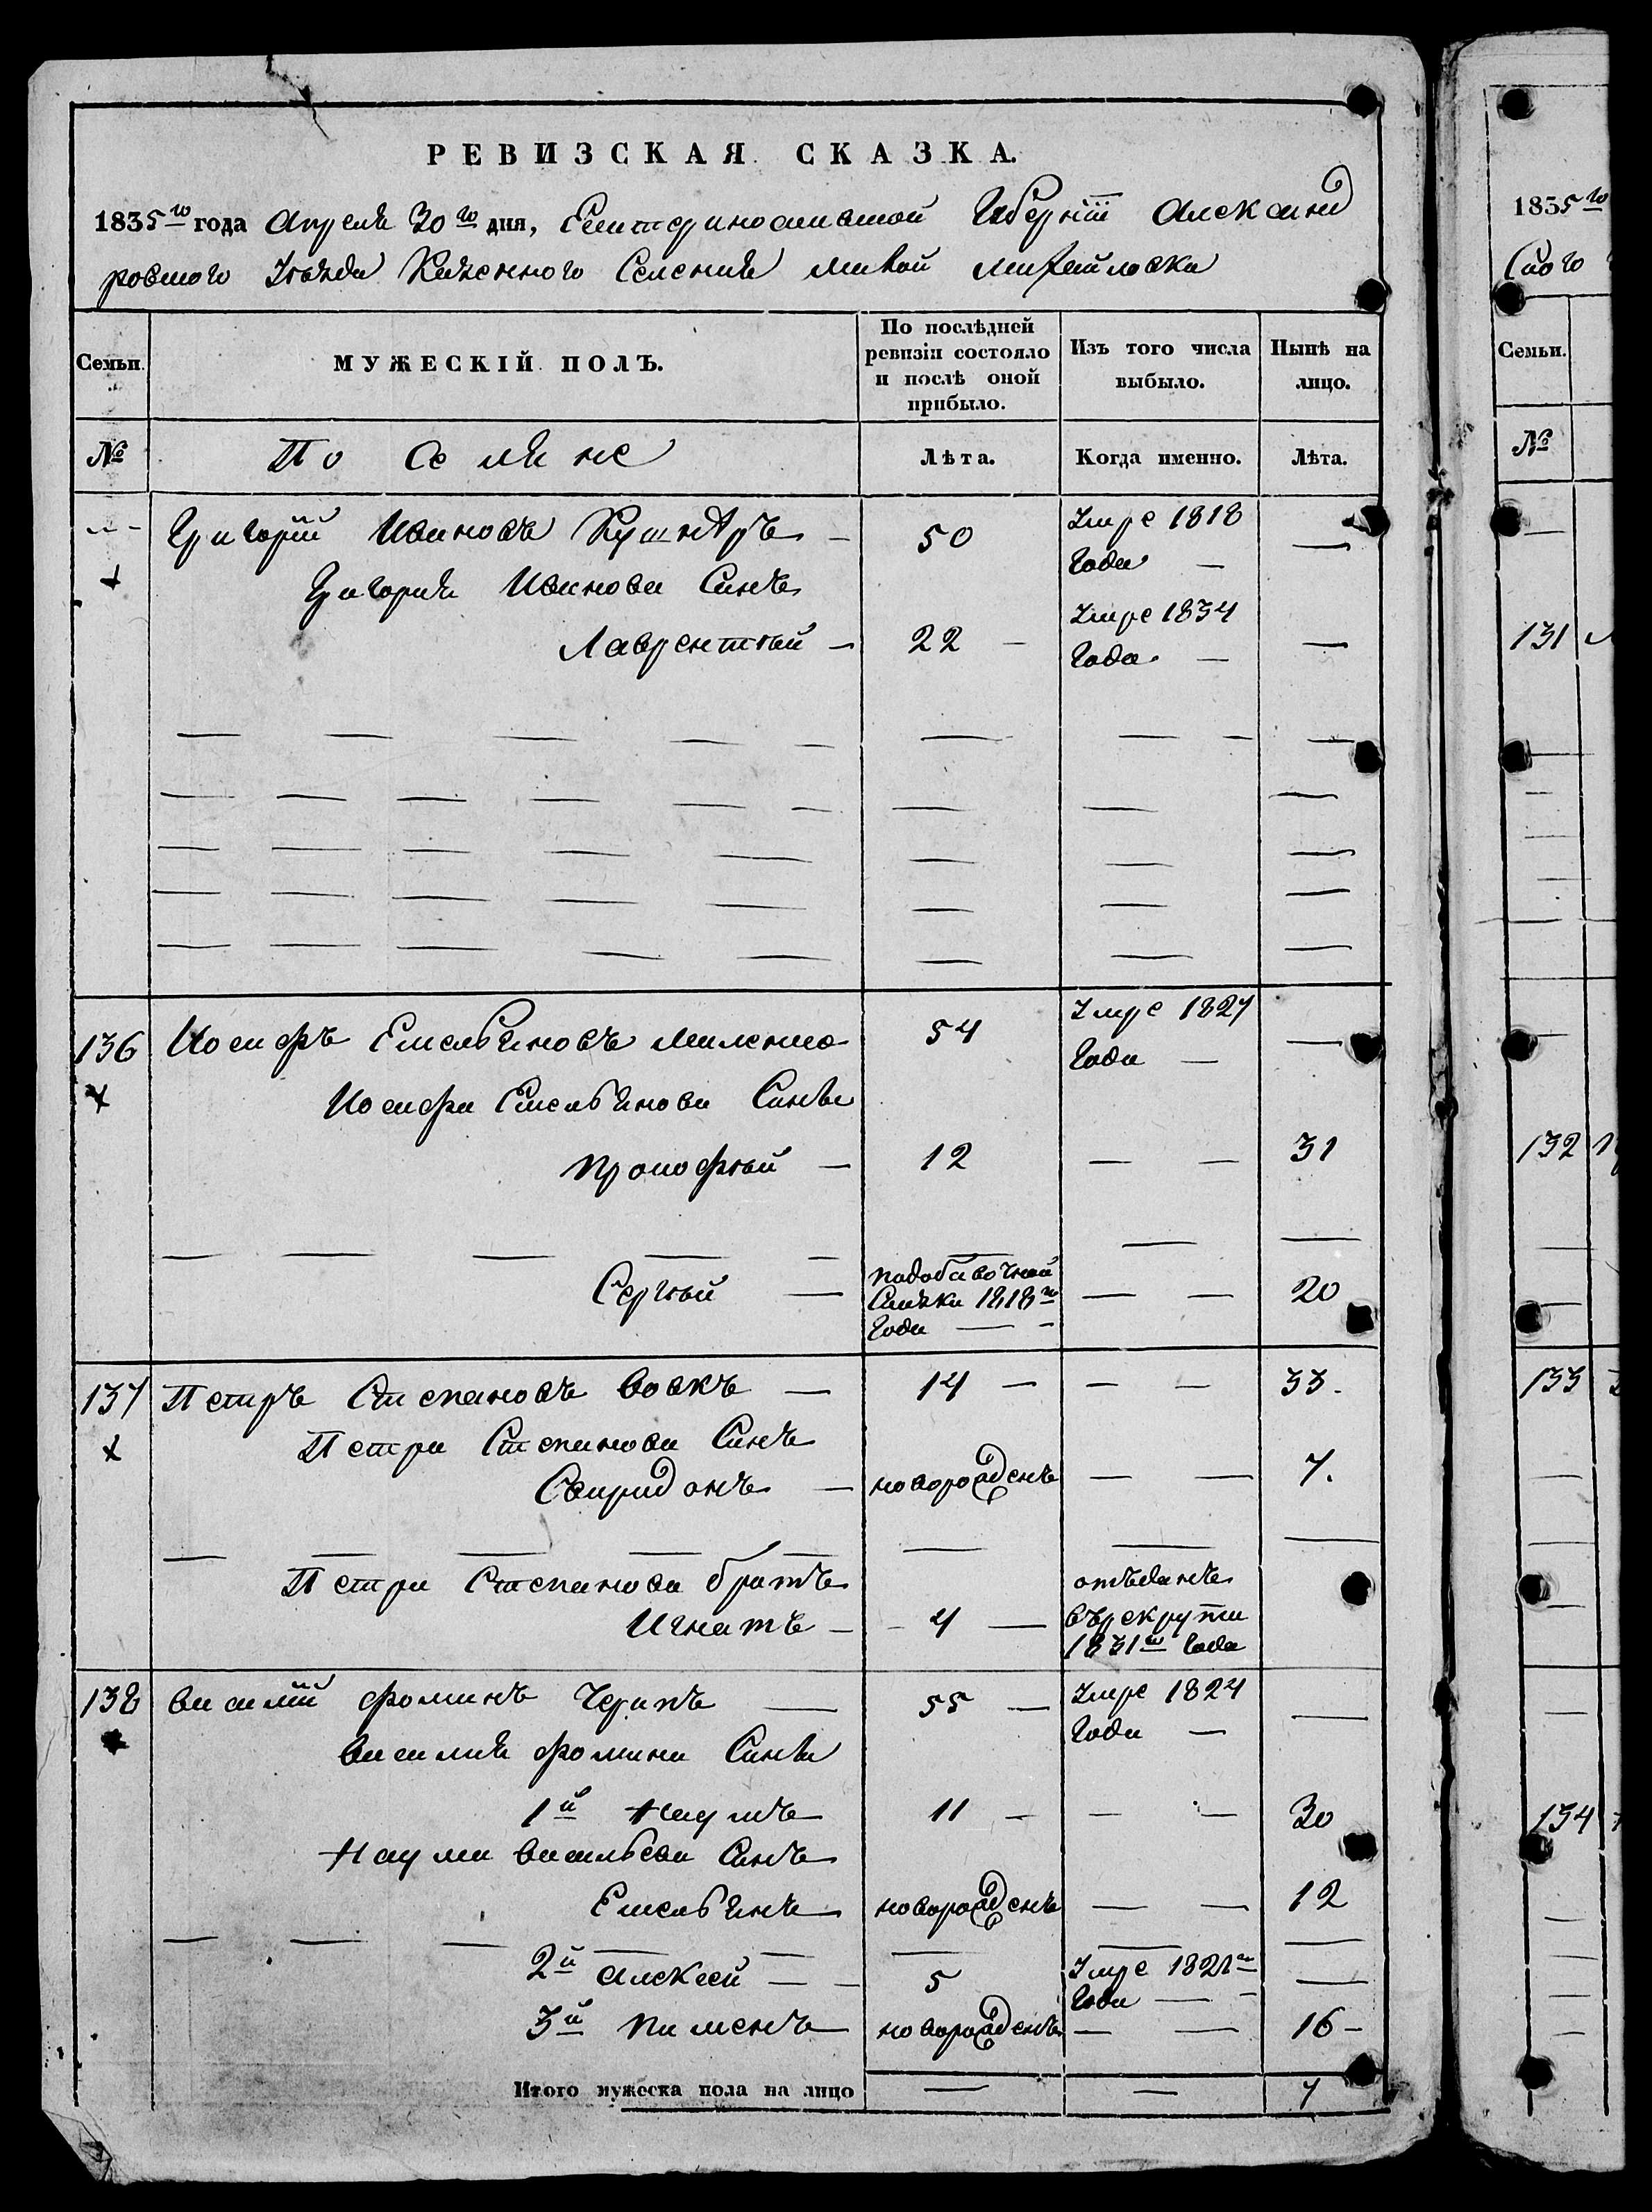 РЕВИЗСКАЯ СКАЗКА.
1835го года Апреля 30го дня, Екатеринославской Губернiи Александ
ровского Уезда Казенного Селения Михайловки
Семьи.
МУЖЕСКІЙ ПОЛЪ.
По послѣдней ревизіи состояло и послѣ оной прибыло.
Изъ того числа выбыло.
Нынѣ на лицо.
№
Лѣта.
Когда именно.
Лѣта.
Григорій Ивановъ Кушнѣръ — 50 Умре 1818 Года — —
Григория Иванова Синъ
Лаврентѣй — 22 — Умре 1834 Года — —
136 Иосифъ Емельяновъ 54 Умре 1827 Года — —
Иосифа Емельянова Сины
Прокофѣй — 12 — — 31
Сергѣй — 1818го Года — — — 20
137 Петръ Степановъ Вовкъ — 14 — — — 33.
Петра Степанова Синъ
Свиридонъ — новорожденъ — — 7.
Петра Степанова братъ
Игнатъ — 4 — отъданъ върекруты 1831го Года
138 Василій Фоминъ Черипъ — 55 — Умре 1824 Года — —
Василия Фомина Сины
1й Наумъ 11 — — — 30
Наума Васильева Синъ
Емельянъ новорожденъ — — 12
2й Алексей — — 5 Умре 1821го Года — — —
3й Пименъ новорожденъ — — 16 —
Итого мужеска пола на лицо — — 7
1835го
Семьи.
№
131
132
133
134